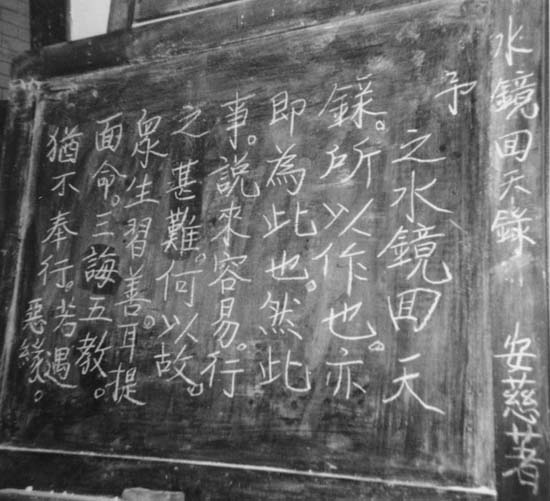 水鏡回天錄 安慈著
予
之水鏡回天
錄。所以作也。亦
即為此也。然此
事。說來容易。行
之甚難。何以故。
眾生習善。耳提
面命。三誨五教。
猶不奉行。若遇
惡緣。